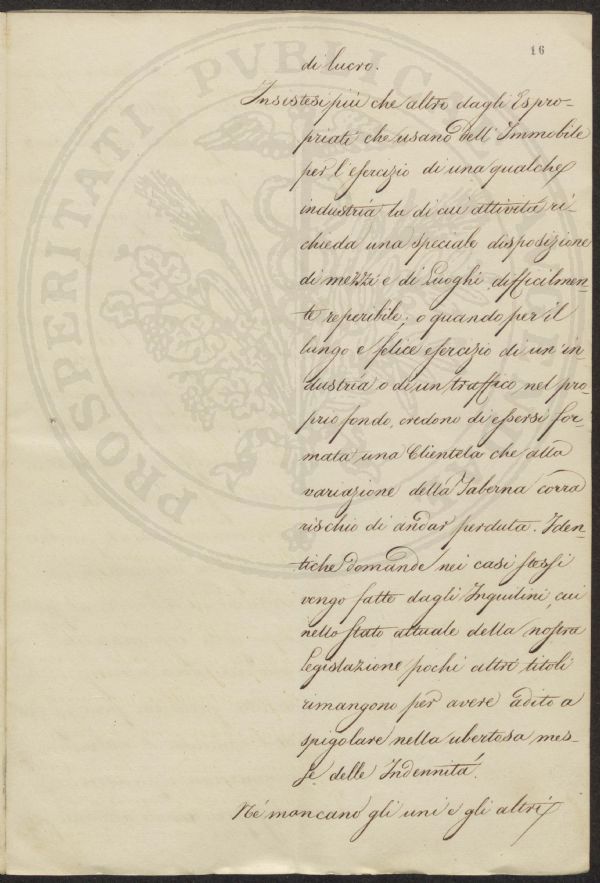 16
di lucro.
Insistesi più che altro dagli Espro-
priati che usano dell'Immobile
per l'esercizio di una qualche
industria la di cui attività ri-
chieda una speciale disposizione
di mezzi e di Luoghi difficilmen-
te reperibile; o quando per il
lungo e felice esercizio di un'in-
dustria o di un traffico nel pro-
prio fondo, credono di essersi for-
mata una Clientela che alla
variazione della Taberna corra
rischio di andar perduta. Iden-
tiche domande nei casi stessi
vengo fatte dagli Inquilini, cui
nello stato attuale della nostra
legislazione pochi altri titoli
rimangono per avere adito a
spigolare nella ubertosa mes-
se delle Indennità.
Né mancano gli uni e gli altri
PROSPERITATI PVBLICAE